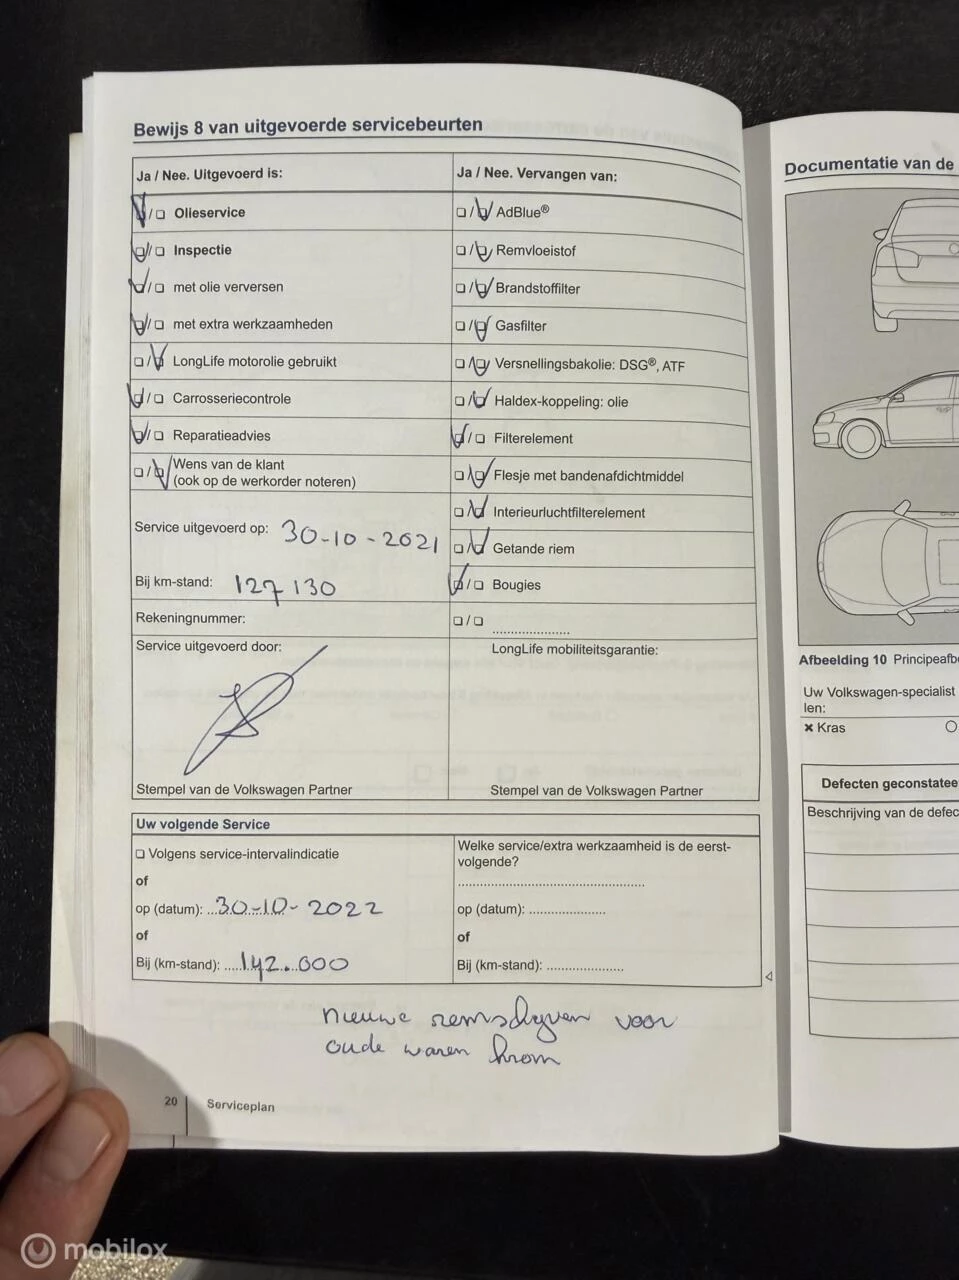 Bewijs 8 van uitgevoerde servicebeurten
Ja / Nee. Uitgevoerd is:
Olieservice
Inspectie
met olie verversen
met extra werkzaamheden
LongLife motorolie gebruikt
Carrosseriecontrole
Reparatieadvies
Wens van de klant
(ook op de werkorder noteren)
Service uitgevoerd op: 30-10-2021
Bij km-stand: 127 130
Rekeningnummer:
Service uitgevoerd door:
Stempel van de Volkswagen Partner
Ja / Nee. Vervangen van:
AdBlue®
Remvloeistof
Brandstoffilter
Gasfilter
Versnellingsbakolie: DSG®, ATF
Haldex-koppeling: olie
Filterelement
Flesje met bandenafdichtmiddel
Interieurluchtfilterelement
Getande riem
Bougies
LongLife mobiliteitsgarantie:
Stempel van de Volkswagen Partner
Uw volgende Service
Volgens service-intervalindicatie
of
op (datum): 30-10-2022
of
Bij (km-stand): 142.000
Welke service/extra werkzaamheid is de eerst-
volgende?
op (datum):
of
Bij (km-stand):
nieuwe remschijven voor
oude waren krom
20 Serviceplan
Documentatie van de
Afbeelding 10 Principeafb
Uw Volkswagen-specialist
len:
× Kras
Defecten geconstatee
Beschrijving van de defec
mobilox